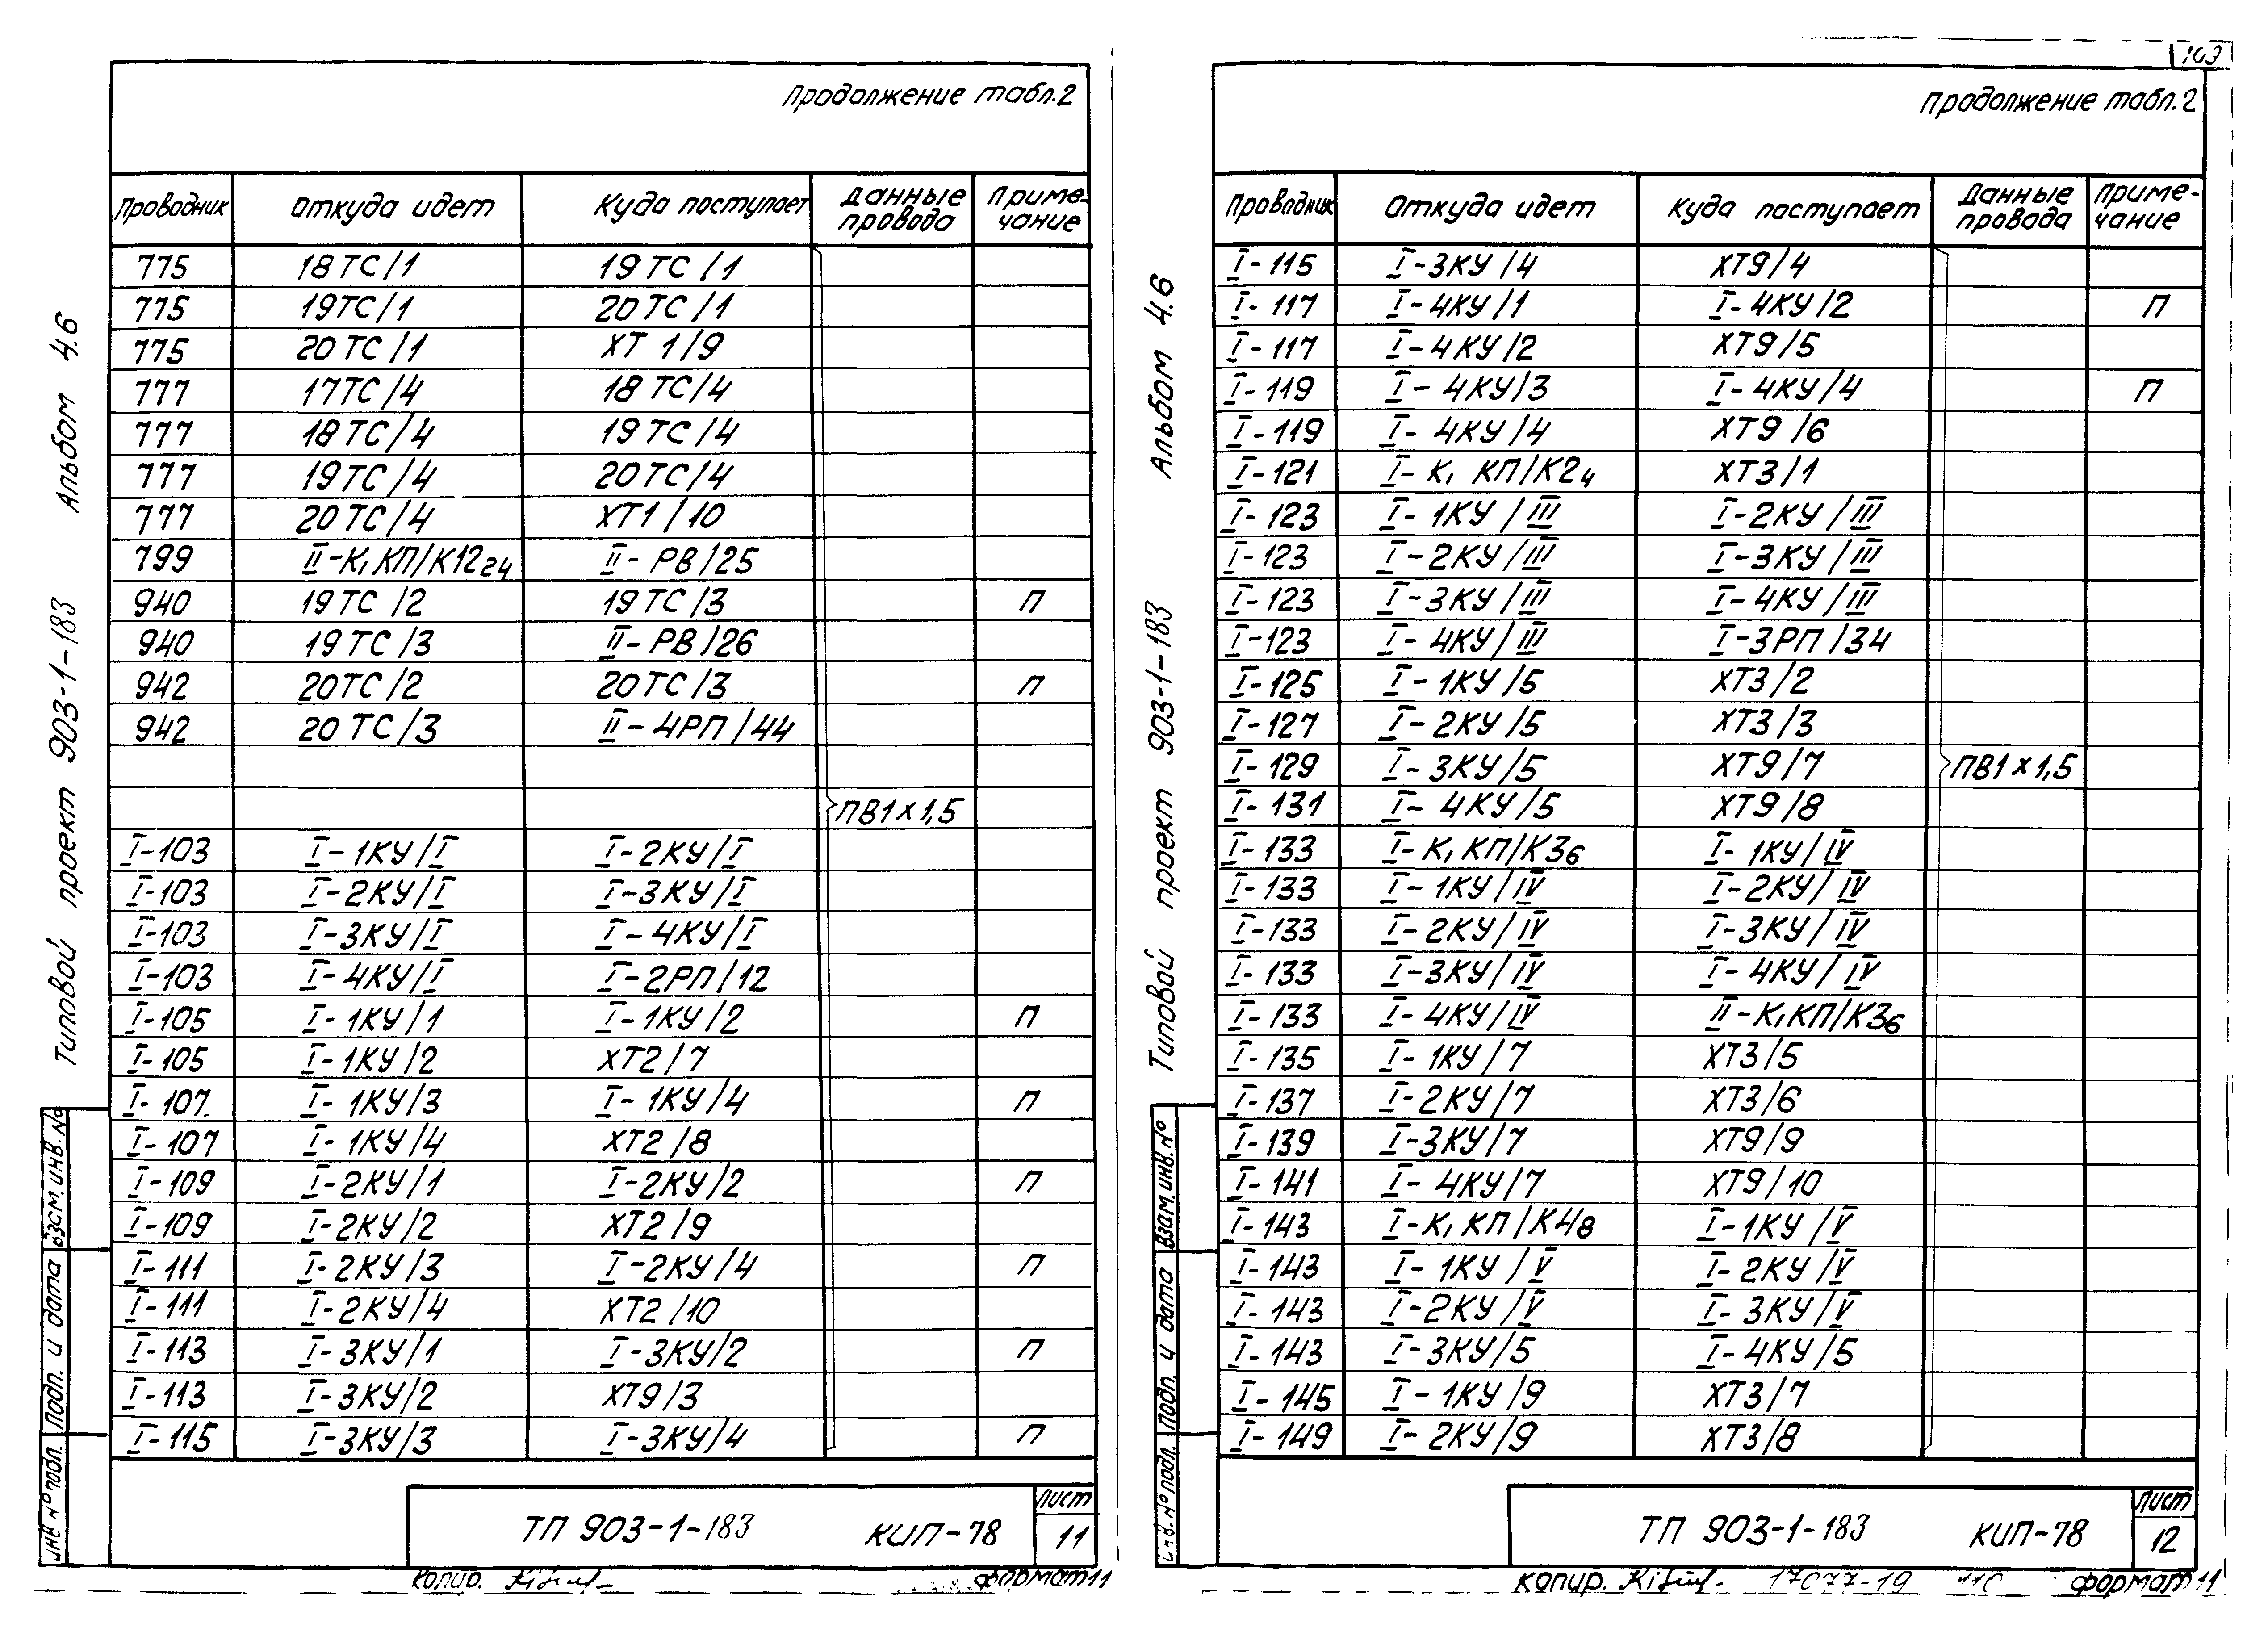 Продолжение табл.2
Проводник Откуда идет Куда поступает Данные провода Приме-чание
775 18ТС/1 19ТС/1
775 19ТС/1 20ТС/1
775 20ТС/1 ХТ1/9
777 17ТС/4 18ТС/4
777 18ТС/4 19ТС/4
777 19ТС/4 20ТС/4
777 20ТС/4 ХТ1/10
799 II-К1 КП/К12 24 II-РВ/25
940 19ТС/2 19ТС/3 П
940 19ТС/3 II-РВ/26
942 20ТС/2 20ТС/3 П
942 20ТС/3 II-4РП/44
ПВ1х1,5
I-103 I-1КУ/I I-2КУ/I
I-103 I-2КУ/I I-3КУ/I
I-103 I-3КУ/I I-4КУ/I
I-103 I-4КУ/I I-2РП/12
I-105 I-1КУ/1 I-1КУ/2 П
I-105 I-1КУ/2 ХТ2/7
I-107 I-1КУ/3 I-1КУ/4 П
I-107 I-1КУ/4 ХТ2/8
I-109 I-2КУ/1 I-2КУ/2 П
I-109 I-2КУ/2 ХТ2/9
I-111 I-2КУ/3 I-2КУ/4 П
I-111 I-2КУ/4 ХТ2/10
I-113 I-3КУ/1 I-3КУ/2 П
I-113 I-3КУ/2 ХТ9/3
I-115 I-3КУ/3 I-3КУ/4 П
ТП 903-1-183 КИП-78
Лист
11
Копир.
формат 11
Типовой проект 903-1-183 Альбом 4.6
Инв. № подл. Подп. и дата Взам. инв. №
103
Продолжение табл.2
Проводник Откуда идет Куда поступает Данные провода Приме-чание
I-115 I-3КУ/4 ХТ9/4
I-117 I-4КУ/1 I-4КУ/2 П
I-117 I-4КУ/2 ХТ9/5
I-119 I-4КУ/3 I-4КУ/4 П
I-119 I-4КУ/4 ХТ9/6
I-121 I-К1 КП/К2 4 ХТ3/1
I-123 I-1КУ/III I-2КУ/III
I-123 I-2КУ/III I-3КУ/III
I-123 I-3КУ/III I-4КУ/III
I-123 I-4КУ/III I-3РП/34
I-125 I-1КУ/5 ХТ3/2
I-127 I-2КУ/5 ХТ3/3
I-129 I-3КУ/5 ХТ9/7 ПВ1х1,5
I-131 I-4КУ/5 ХТ9/8
I-133 I-К1 КП/К3 6 I-1КУ/IV
I-133 I-1КУ/IV I-2КУ/IV
I-133 I-2КУ/IV I-3КУ/IV
I-133 I-3КУ/IV I-4КУ/IV
I-133 I-4КУ/IV II-К1 КП/К3 6
I-135 I-1КУ/7 ХТ3/5
I-137 I-2КУ/7 ХТ3/6
I-139 I-3КУ/7 ХТ9/9
I-141 I-4КУ/7 ХТ9/10
I-143 I-К1 КП/К4/8 I-1КУ/V
I-143 I-1КУ/V I-2КУ/V
I-143 I-2КУ/V I-3КУ/V
I-143 I-3КУ/5 I-4КУ/5
I-145 I-1КУ/9 ХТ3/7
I-149 I-2КУ/9 ХТ3/8
ТП 903-1-183 КИП-78
Лист
12
Копир. 17077-19 110 формат 11
Типовой проект 903-1-183 Альбом 4.6
Инв. № подл. Подп. и дата Взам. инв. №